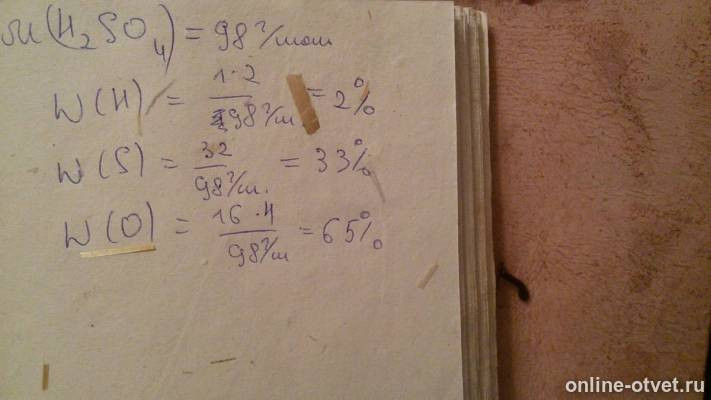 M(H₂SO₄) = 98 г/моль
W(H) = 1·2 / 98 г/м = 2%
W(S) = 32 / 98 г/м. = 33%
W(O) = 16·4 / 98 г/м = 65%
online-otvet.ru